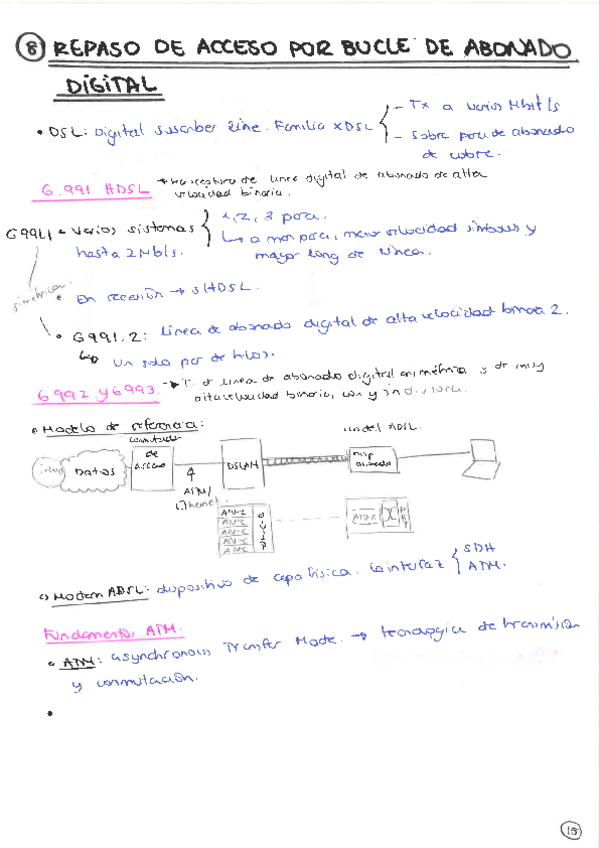 ⑧ REPASO DE ACCESO POR BUCLE DE ABONADO
DIGITAL
• DSL: Digital suscriber Line. Familia XDSL
- Tx a varios Mbit/s
- Sobre par de abonado
de cobre.
G.991 HDSL
de linea digital de abonado de alta
velocidad binaria.
G991.1 varios sistemas
hasta 2Mb/s.
1,2,3 pares.
↳ a mas pares, menor velocidad simbolos y
mayor long de linea.
simétrica
• En recesión → SHDSL.
• G991.2: Linea de abonado digital de alta velocidad binaria 2.
↳ un solo par de hilos.
G992 y G993.
de linea de abonado digital asimétrica y de muy
alta velocidad binaria, con y sin
• Modelo de referencia:
conmutador
de
acceso
DATOS
DSLAM
ATM/
Ethernet
modem ADSL.
ATU-C
ATU-C
ATU-C
ATU-C
ATU-R
• Modem ADSL: dispositivo de capa física. interfaz
SDH
ATM.
Fundamentos ATM.
• ATM: asynchronous Transfer Mode. → tecnologica de transmisión
y conmutación.
•
15